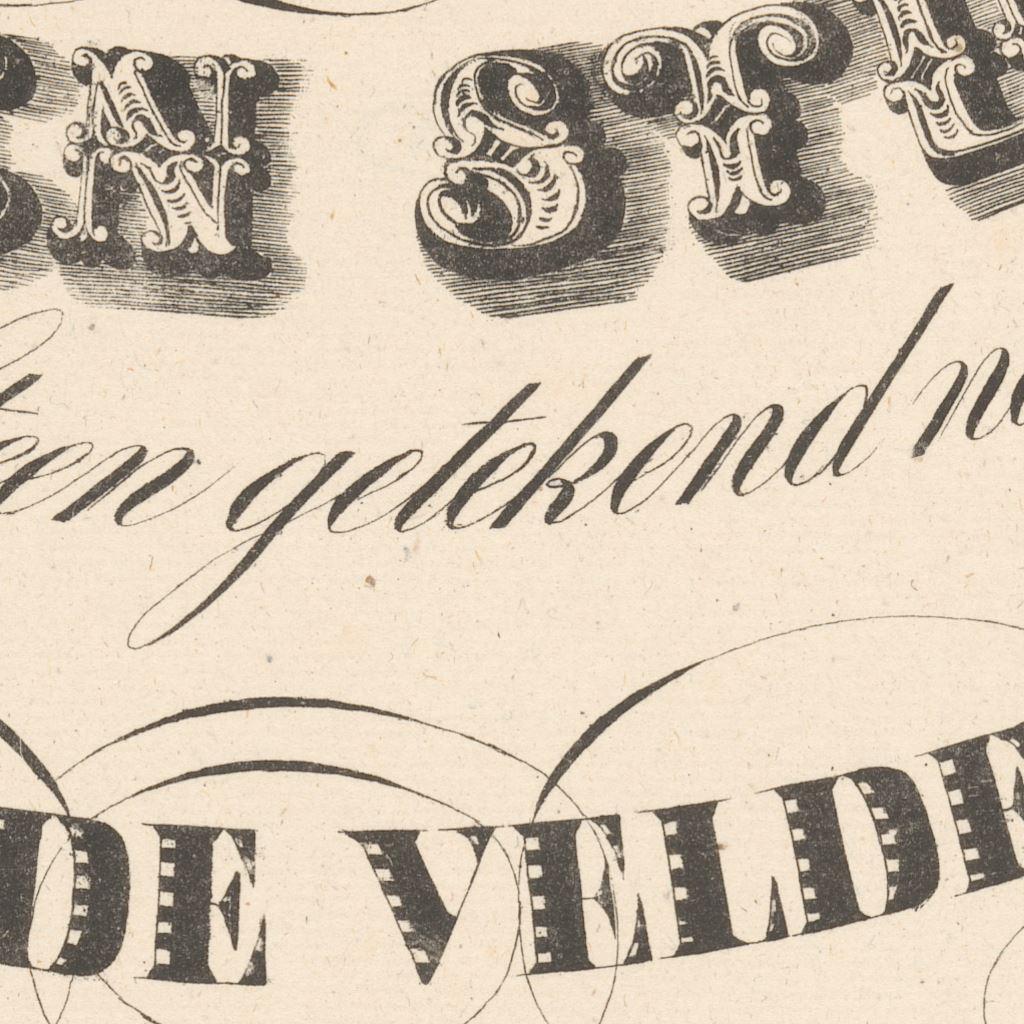 EN STE
teen getekend na
DE VELDE